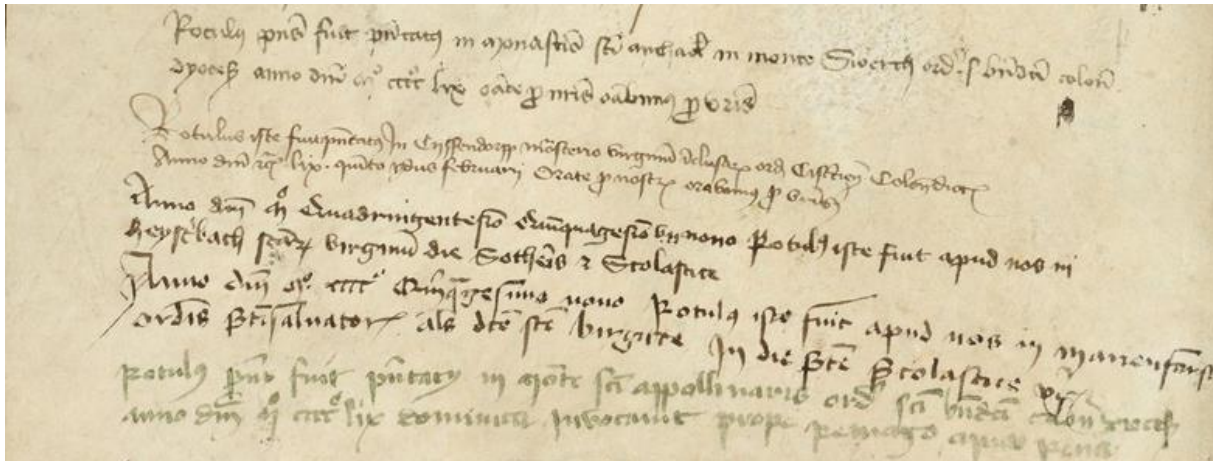 Rotulus pns fuit pntatus in monastio sci michael in monte Sibergh ord s bndti colon
dyoces anno dni mo cccco lix orate p nris orabimus p vris
Rotulus iste fuit pntatus In Cyssendorpp monasterio virginu ord Cistcien Colon dioc
Anno dni lix quinto ydus februarii Orate p nostr orabimus p vris
Anno dni mo Quadringentesio Quinquagesio nono Rotulus iste fuit apud nos in
Heysterbach scar virginu die Sotheris et Scolastice
Anno dni mo cccco Quinqgesimo nono Rotulus iste fuit apud nos in marienforst
ordis Sti Saluator als dce sce birgitte In die Sce Scolastice v
Rotulus pns fuit pntatus in mote sci appollinaris ord sci bndti colon dioces
anno dni mo cccco lix dominica Invocavit prope remago apud